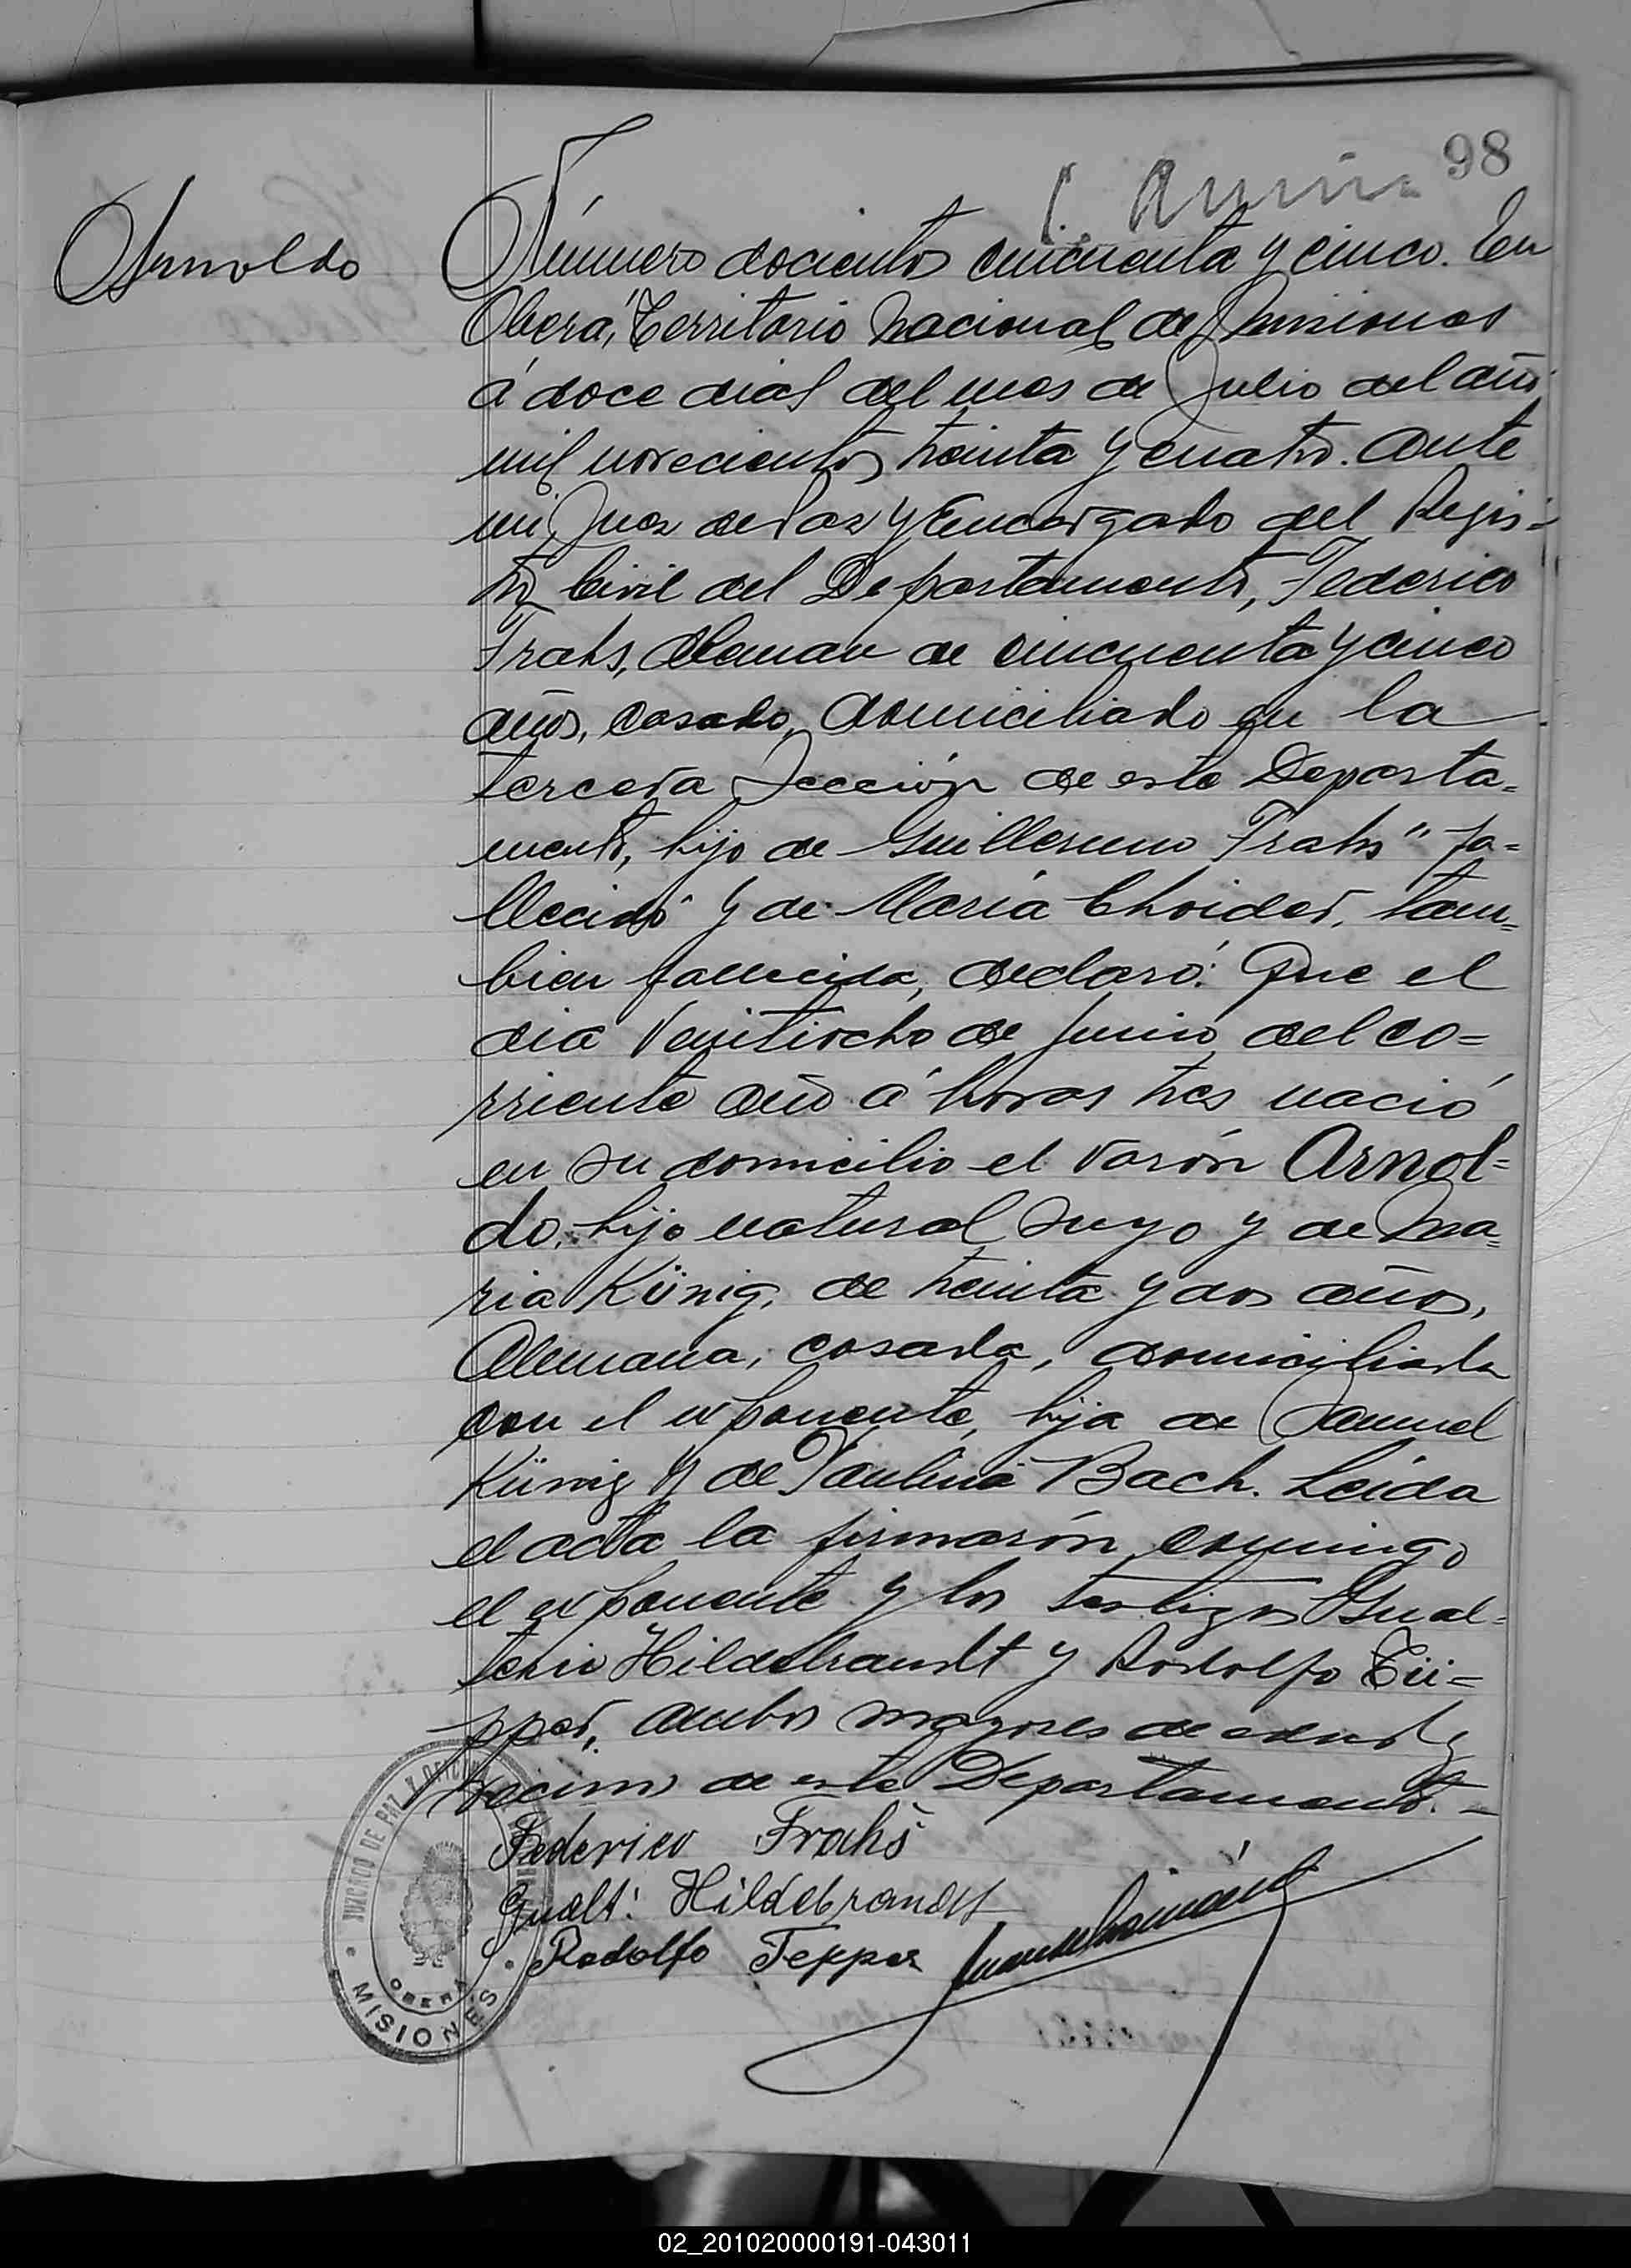 98
Arnoldo
Número docientos cincuenta y cinco. En
Oberá, Territorio Nacional de Misiones
á doce dias del mes de Julio del año
mil novecientos treinta y cuatro. Ante
mi, Juez de Paz y Encargado del Regis-
tro Civil del Departamento, Federico
Frahs, Aleman de cincuenta y cinco
años, casado, domiciliado en la
tercera Sección de este Departa=
mento, hijo de Guillermo Frahs "fa=
llecido" y de María Chroider, tam=
bien fallecida, declaró: Que el
dia veintiocho de Junio del co=
rriente año á horas tres nació
en su domicilio el varón Arnol=
do, hijo natural suyo y de Ma=
ria Künig, de treinta y dos años,
Alemana, casada, domiciliada
con el exponente, hija de Samuel
Künig y de Paulina Bach. Leida
el acta la firmarón conmigo
el exponente y los testigos Gual=
terio Hildebrandt y Rodolfo Tü=
pper, ambos mayores de edad y
vecinos de este Departamento.-
Federico Frahs
Gualt: Hildebrandt
Rodolfo Tepper
JUZGADO DE PAZ Y OFICINA
OBERÁ
MISIONES
02_201020000191-043011